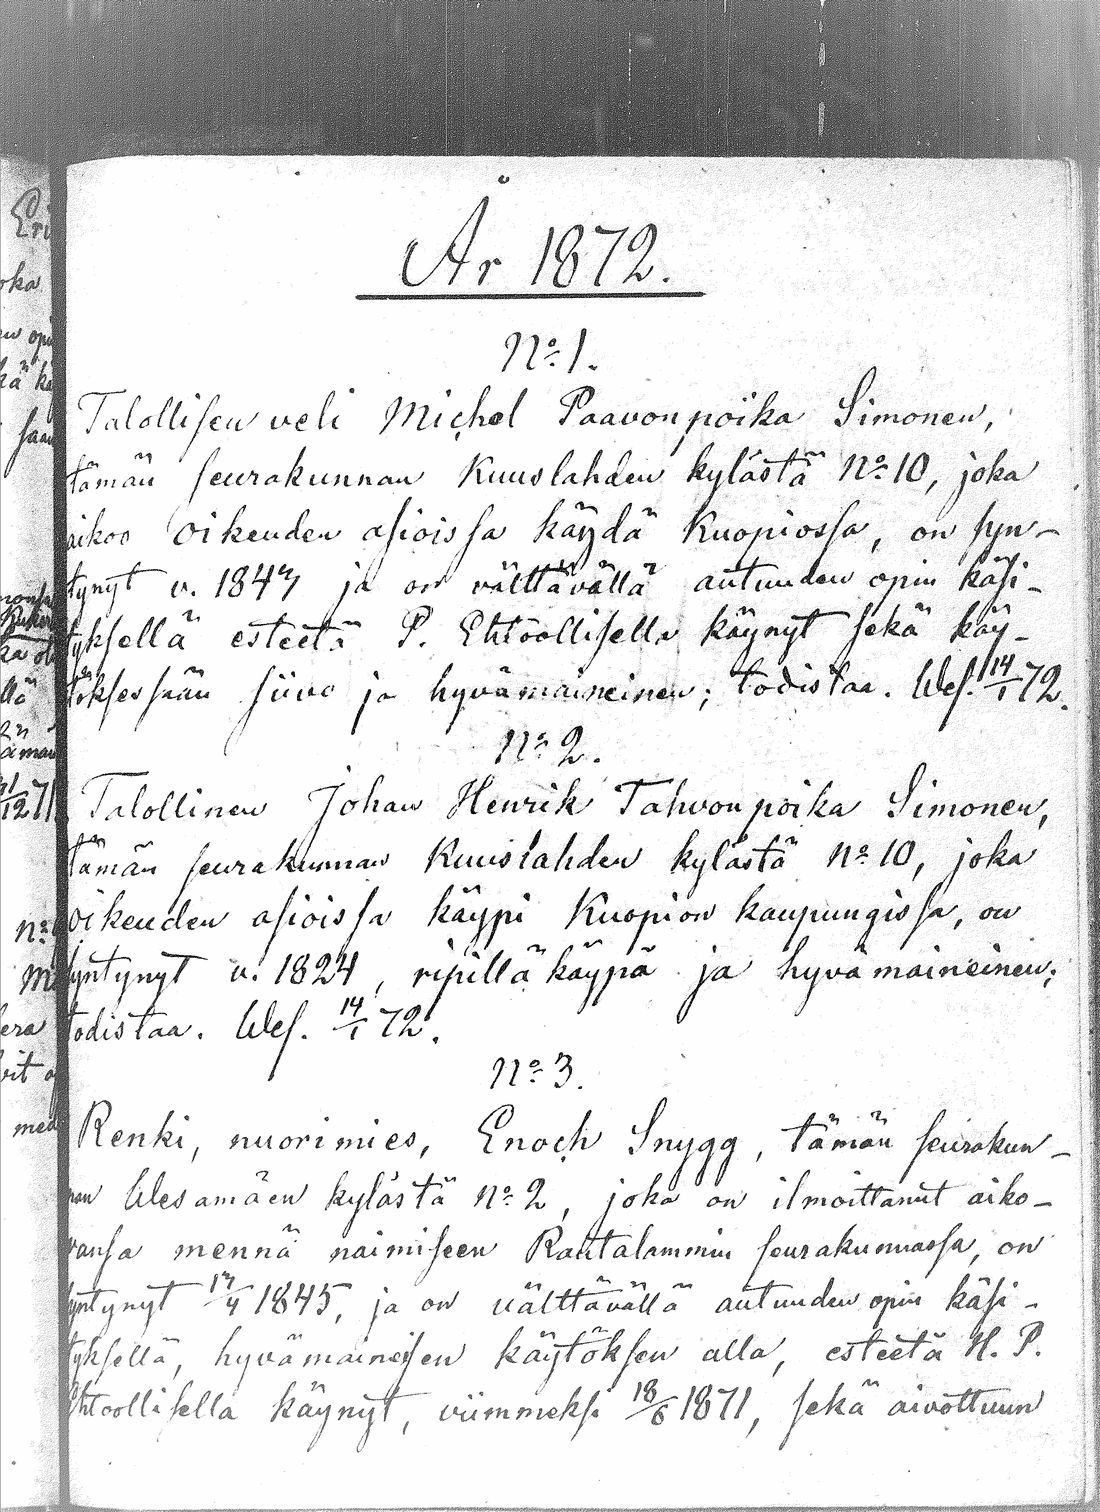 År 1872.
No 1.
Talollisen veli Michel Paavonpoika Simonen,
tämän seurakunnan Kuuslahden kylästä No 10, joka
aikoo oikeuden asioissa käydä Kuopiossa, on syn-
tynyt v. 1847 ja on välttävällä autuuden opin käsi-
tyksellä esteetä P. Ehtoollisella käynyt sekä käy-
töksessään siivo ja hyvämaineinen; todistaa. Wes. 14/1 72.
No 2.
Talollinen Johan Henrik Tahvonpoika Simonen,
tämän seurakunnan Kuuslahden kylästä No 10, joka
oikeuden asioissa käypi Kuopion kaupungissa, on
syntynyt v. 1824, ripillä käypä ja hyvämaineinen;
todistaa. Wes. 14/1 72.
No 3.
Renki, nuorimies, Enoch Snygg, tämän seurakun-
nan Wesamäen kylästä No 2, joka on ilmoittanut aiko-
vansa mennä naimiseen Rautalammin seurakunnassa, on
syntynyt 17/4 1845, ja on välttävällä autuuden opin käsi-
tyksellä, hyvämaineisen käytöksen alla, esteetä H. P.
Ehtoollisella käynyt, viimmeksi 18/6 1871, sekä aivottuun